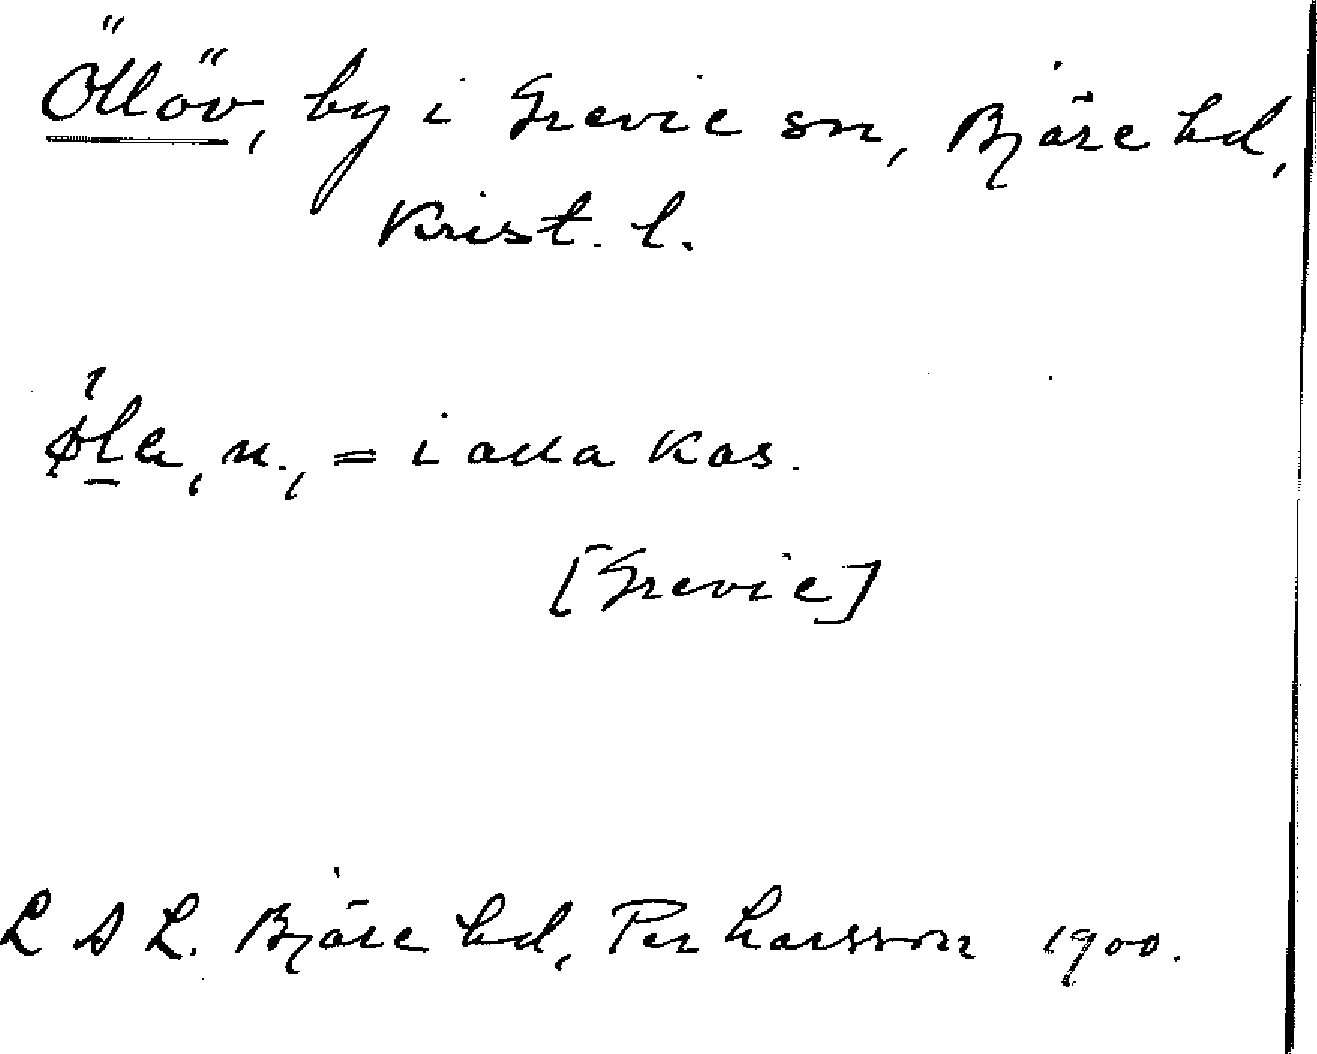 Öllöv, by i Grevie sn, Bjäre hd,
Krist. l.
n., = i alla kas.
[Grevie]
L A L. Bjäre hd, Per Larsson 1900.